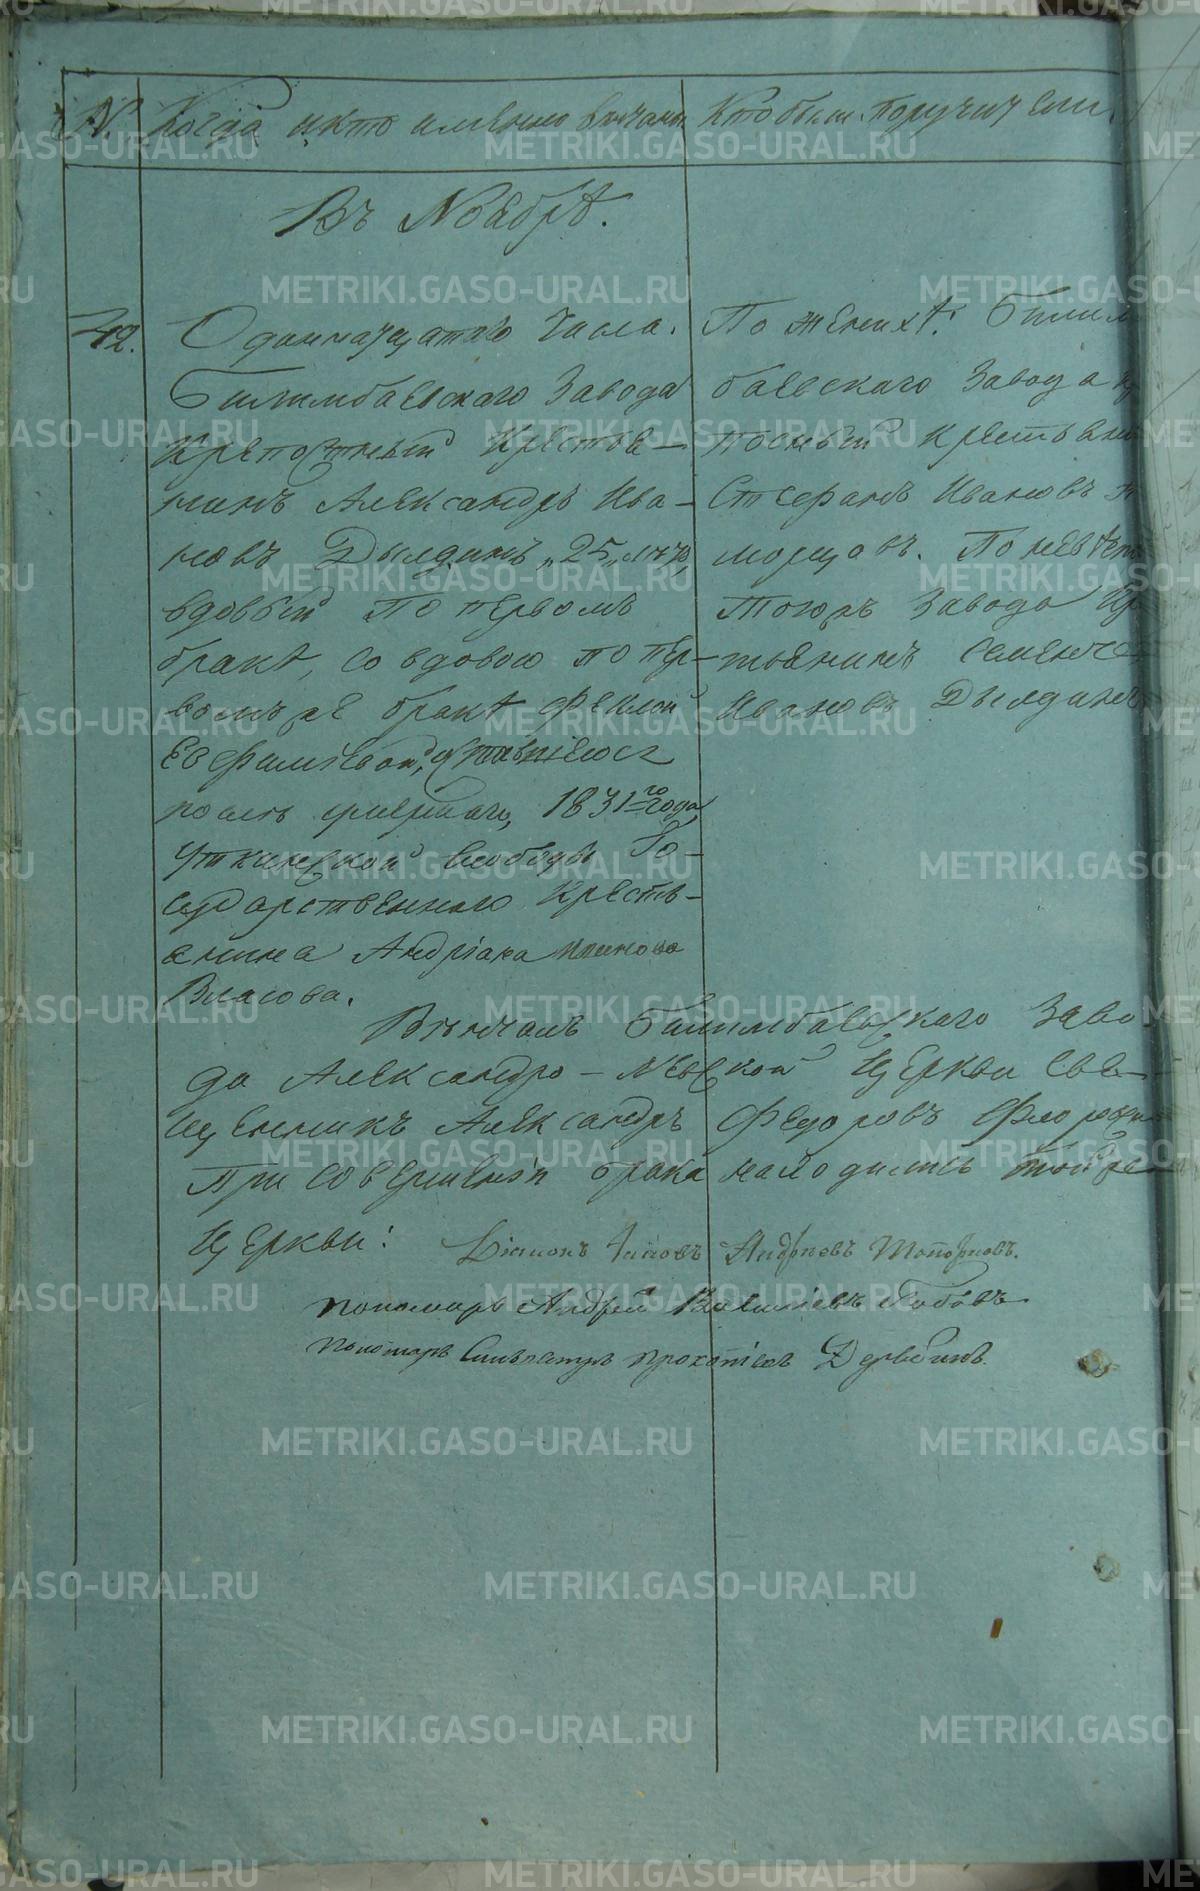 №. Когда и кто именно венчаны Кто были поручители.
Въ Ноябрѣ.
42. Одиннадцатаго числа.
Билимбаевскаго Завода
крепостный крестья-
нинъ Александръ Ива-
новъ Дылдинъ „25„ лѣтъ,
вдовый по первомъ
бракѣ, со вдовою по пер-
вомъ же бракѣ Феклой
Евфимьевой, оставшеюся
послѣ умершаго, 1831го года
Уткинской слободы Го-
сударственнаго Кресть-
янина Андріана
Власова.
По женихѣ: Билим
баевскаго Завода кр
постный крестьяни
Стефанъ Ивановъ
морцовъ. По невѣстѣ
тогожъ Завода Кр
тьянинъ Семенъ
Ивановъ Дылдинъ
Вѣнчалъ Билимбаевскаго Заво-
да Александро-Невской Церкви Свя-
щенникъ Александръ Федоровъ
При совершеніи брака находились той же
Церкви: Діаконъ Андреевъ Топорковъ.
пономарь Андрей Васильевъ Бобовъ
пономарь Прокопіевъ Дерябинъ.
METRIKI.GASO-URAL.RU